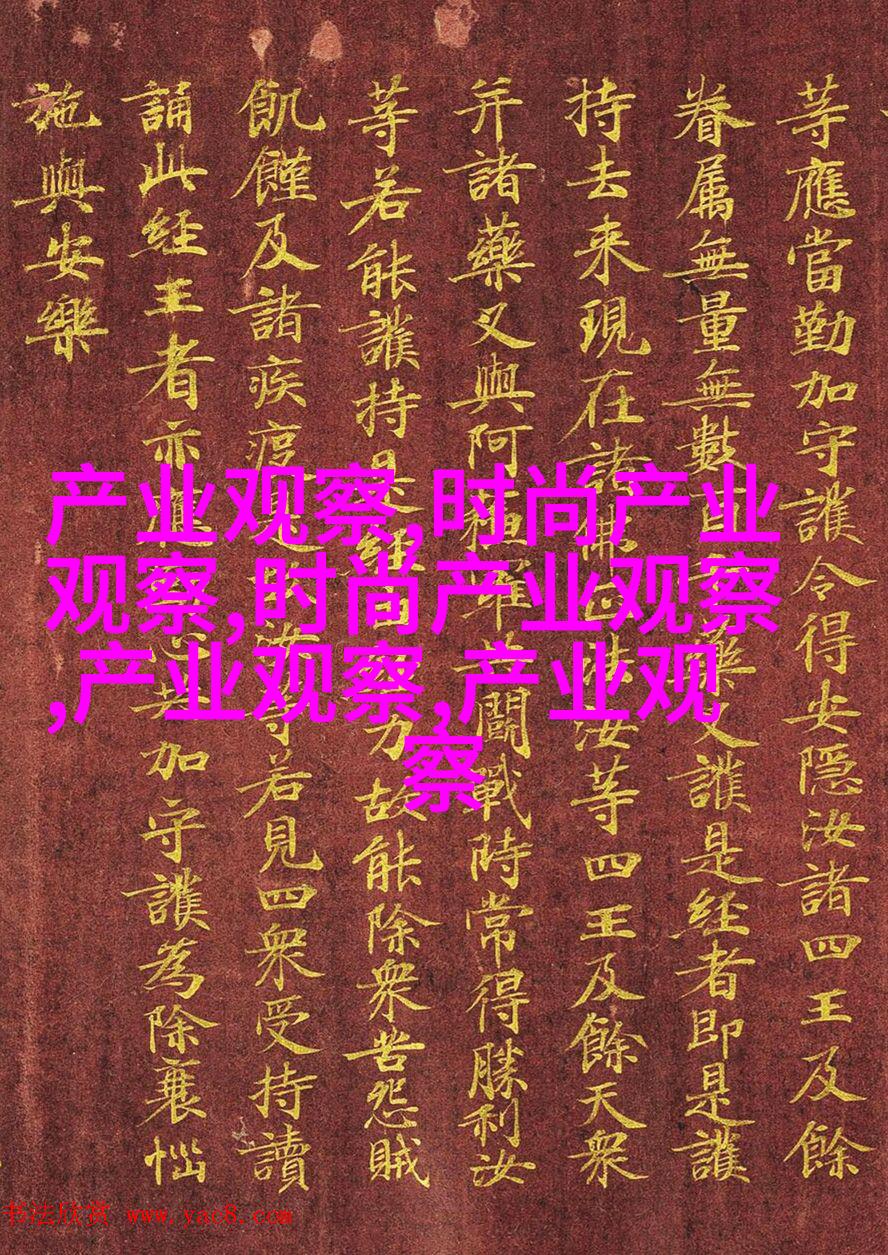 等應當勤加守護令得安隱汝諸四王及餘
眷属無量無數百藥叉護是經者即是護
持去来現在諸佛法汝等四王及餘天衆
并諸藥叉與阿鬪戰時常得勝利汝
等若能護持是經力故能除衆苦怨賊
飢饉及諸疾疫汝等若見四衆受持讀
誦此經王者亦應加守護為除衰惱
施與安樂
产业观察,时尚产业
观察,时尚产业观察
,产业观察,产业观
察
书法欣赏 www.yac8.com